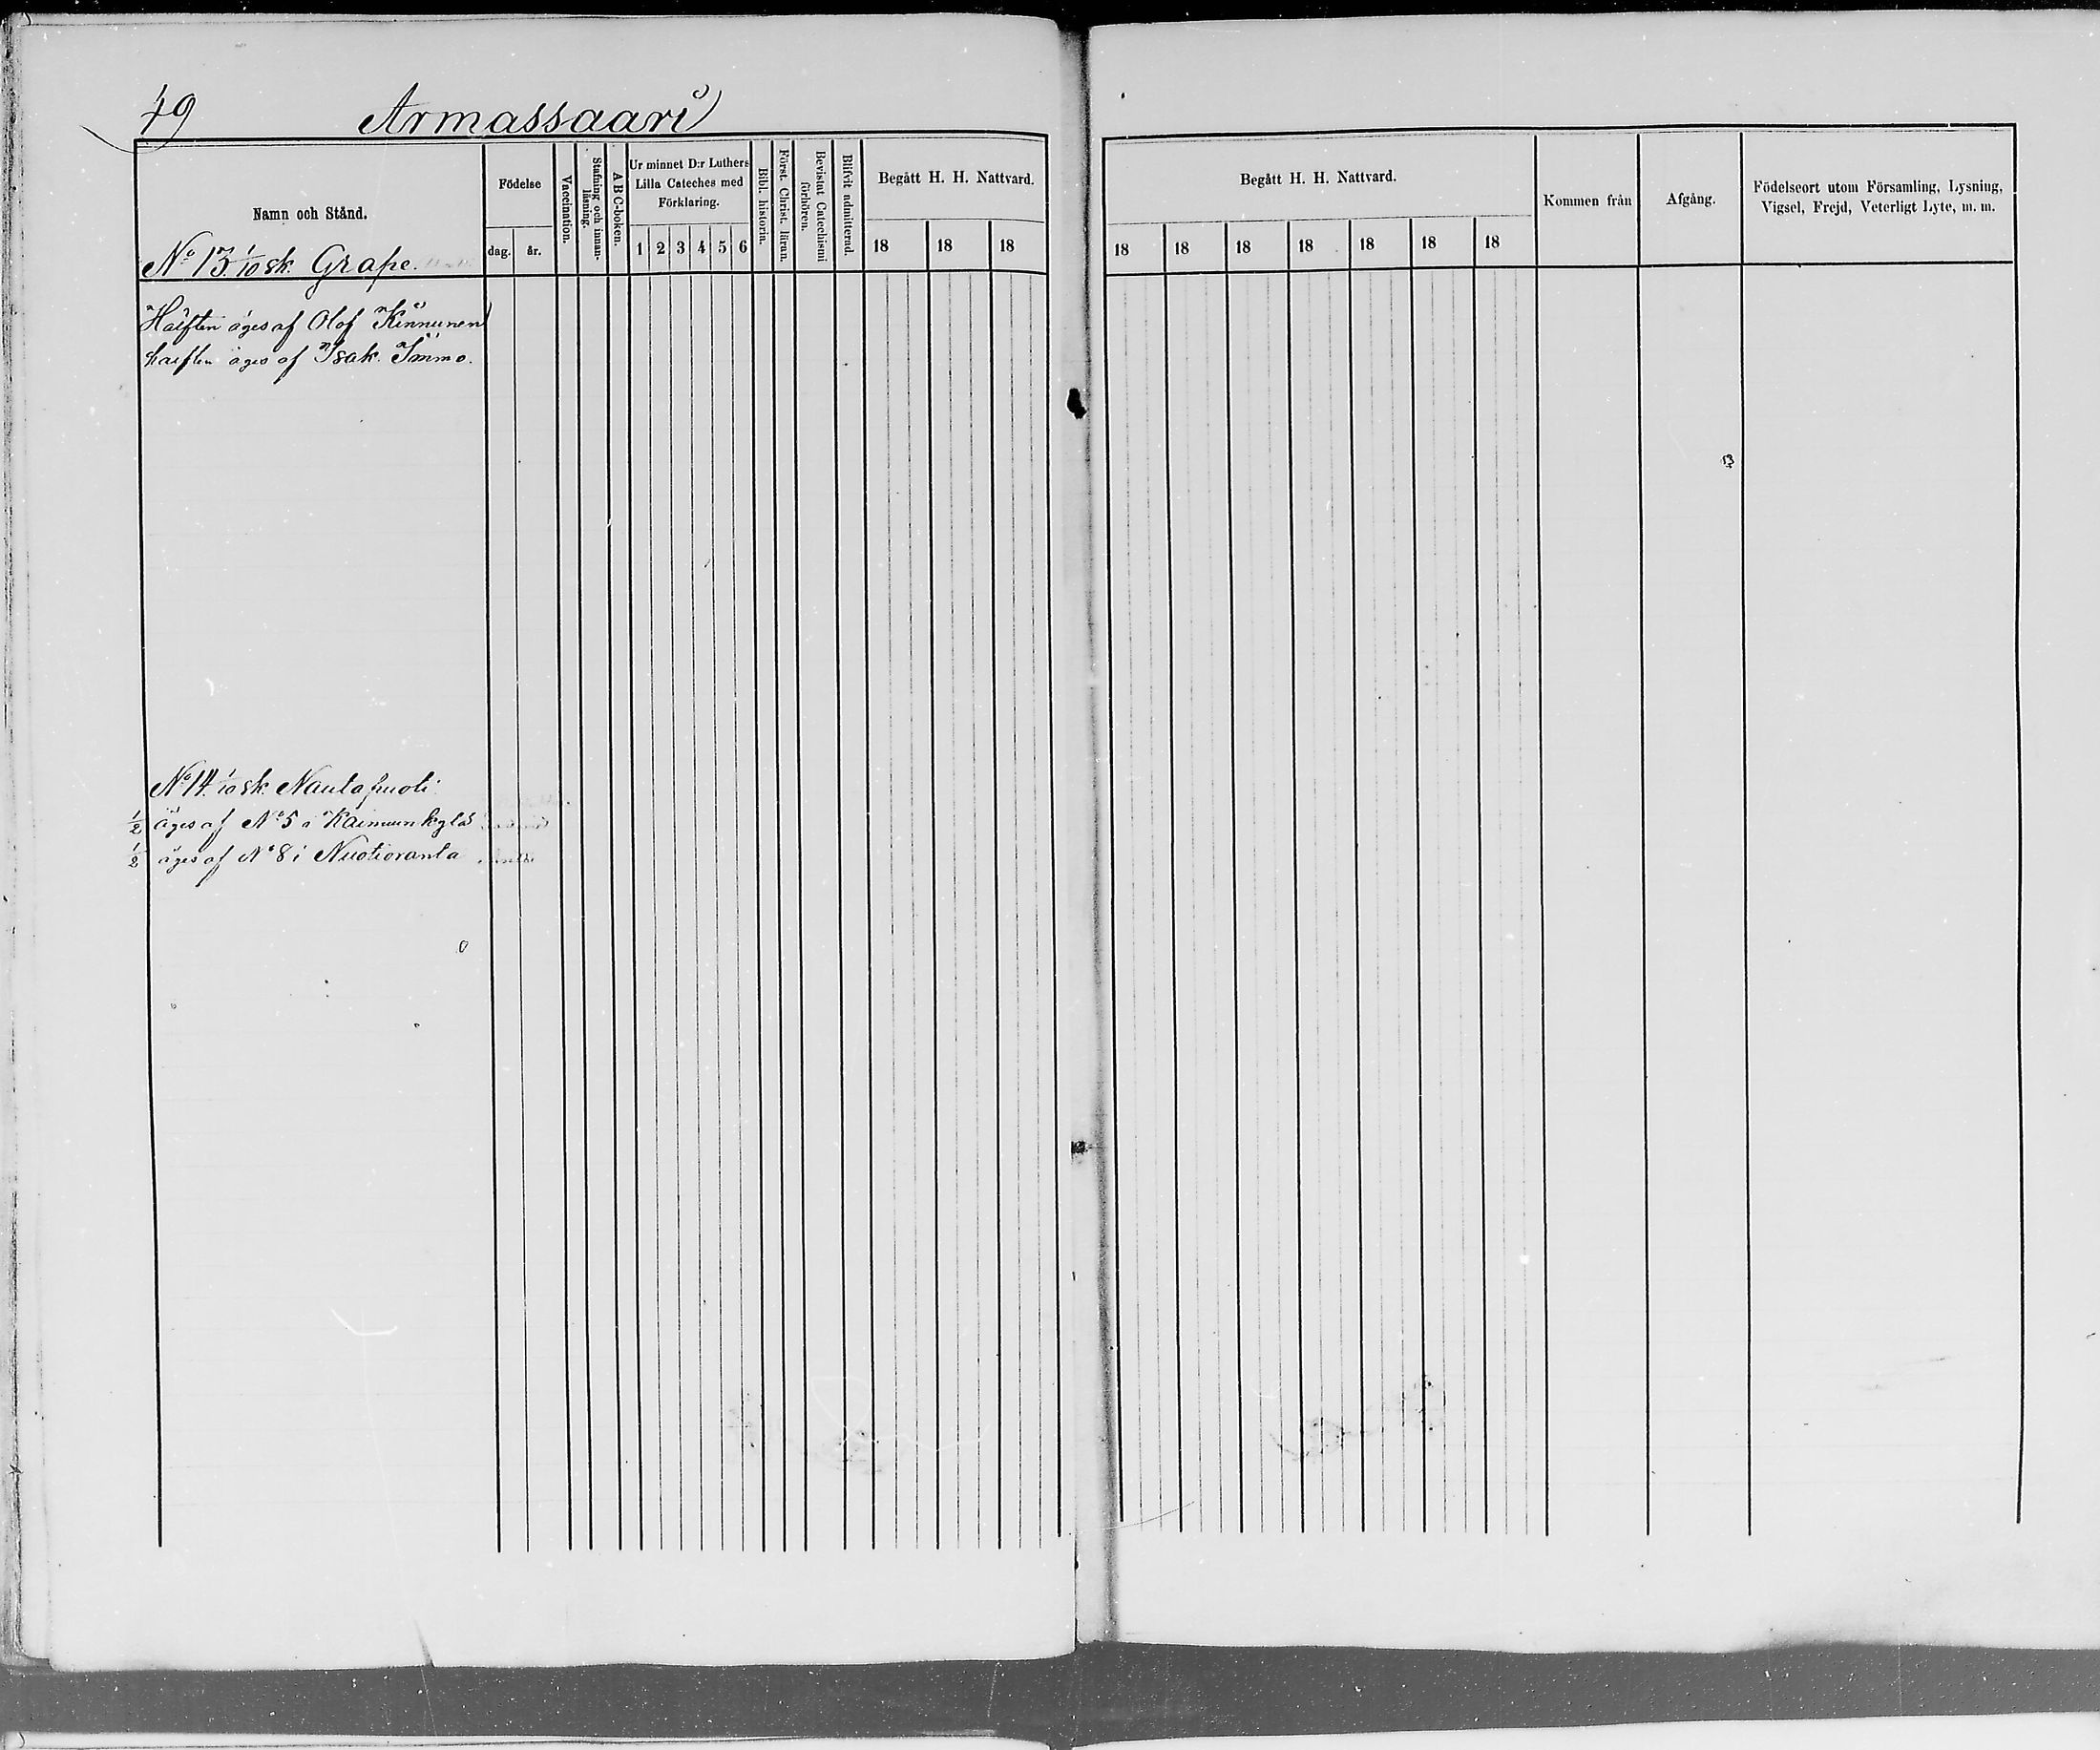 49 Armassaari
Namn och Stånd.
Födelse
dag. år.
Vaccination.
Stafning och innan-
läsning.
A B C-boken.
Ur minnet D:r Luthers
Lilla Cateches med
Förklaring.
1 2 3 4 5 6
Bibl. historia.
Först. Christ. läran.
Bevistat Catechismi
förhören.
Blifvit admitterad.
Begått H. H. Nattvard.
18 18 18
Begått H. H. Nattvard.
18 18 18 18 18 18 18
Kommen från
Afgång.
Födelseort utom Församling, Lysning,
Vigsel, Frejd, Veterligt Lyte, m. m.
No 13. 1/10 sk. Grape.
Hälften äges af Olof Kinnunen
hälften äges af Isak Immo.
No 14. 1/10 sk. Nautapuoti
1/2 äges af No 5 i
1/2 äges af No 8 i Nuotioranta